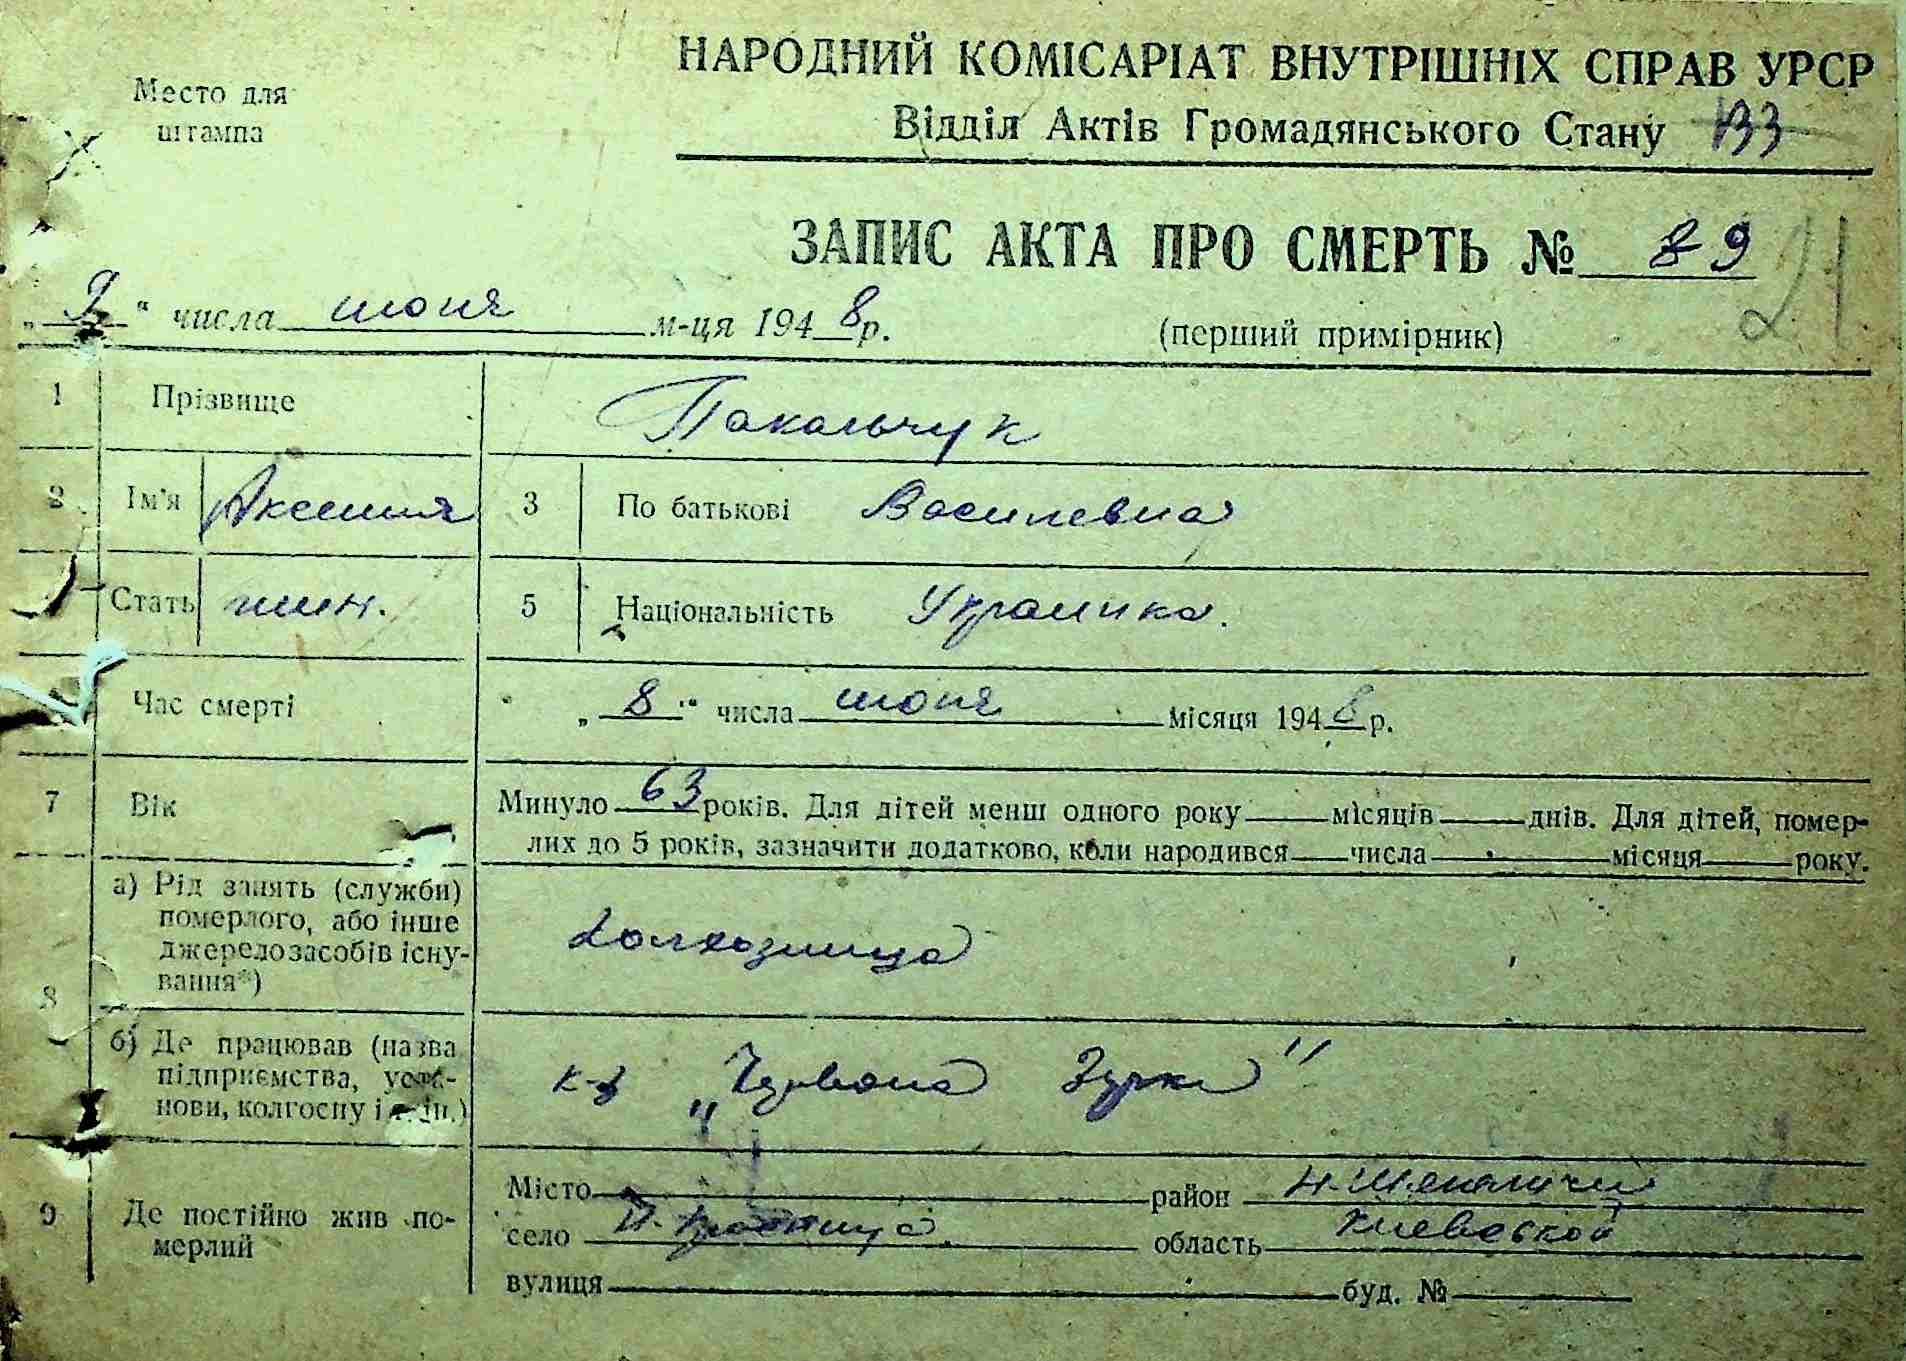 НАРОДНИЙ КОМІСАРІАТ ВНУТРІШНІХ СПРАВ УРСР
Место для штампа
Відділ Актів Громадянського Стану 133
ЗАПИС АКТА ПРО СМЕРТЬ № 89
21
„9“ числа июня м-ця 1948р. (перший примірник)
1 Прізвище Пакальчук
2 Ім'я Аксенья 3 По батькові Василевна
Стать жин. 5 Національність Украинка.
Час смерті „8“ числа июня місяця 1948р.
7 Вік Минуло 63 років. Для дітей менш одного року місяців днів. Для дітей, помер-
лих до 5 років, зазначити додатково, коли народився числа місяця року.
8 а) Рід занять (служби)
померлого, або інше
джерело засобів існу-
вання*)
Колхозница
б) Де працював (назва
підприємства, уста-
нови, колгоспу і т. ін.)
к-з „Червона Зирка"
9 Де постійно жив по-
мерлий
Місто район Н.
село область Киевской
вулиця буд. №